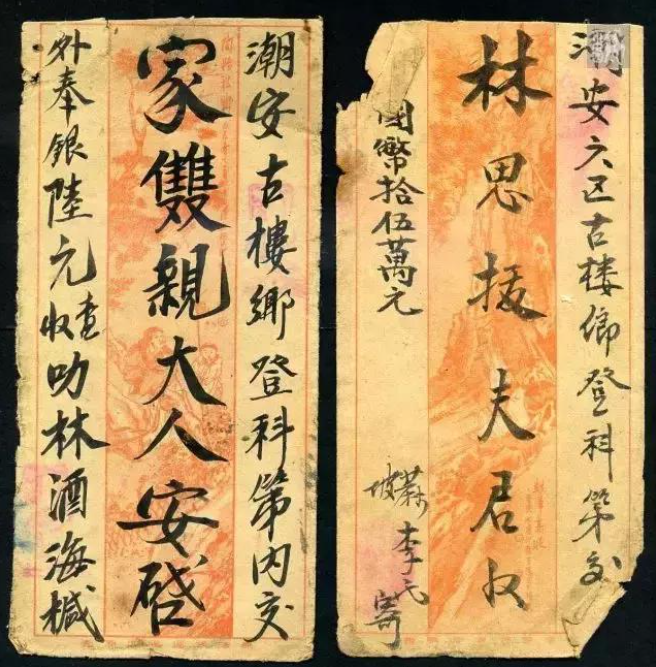 潮安古樓鄉登科第內交
家雙親大人安啓
外奉銀陸元查收叻林酒海椷
潮安六区古楼鄉登科第交
林思拔夫君收
國幣拾伍萬元
蔴坡李氏寄